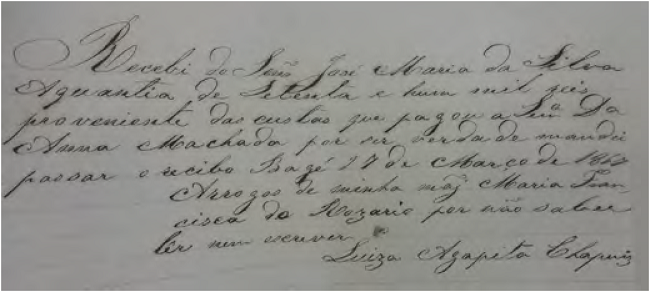 Recebi do Senr. José Maria da Silva
Aquantia de Setenta e hum mil reis
proveniente das custas que pagou a Snrª Da
Anna Machada por ser verdade mandei
passar o recibo Bagé 27 de Março de
Arrogos de minha maj Maria Fran
cisca do Rozario por não saber
ler nem escrever
Luiza Agapita Chapuis